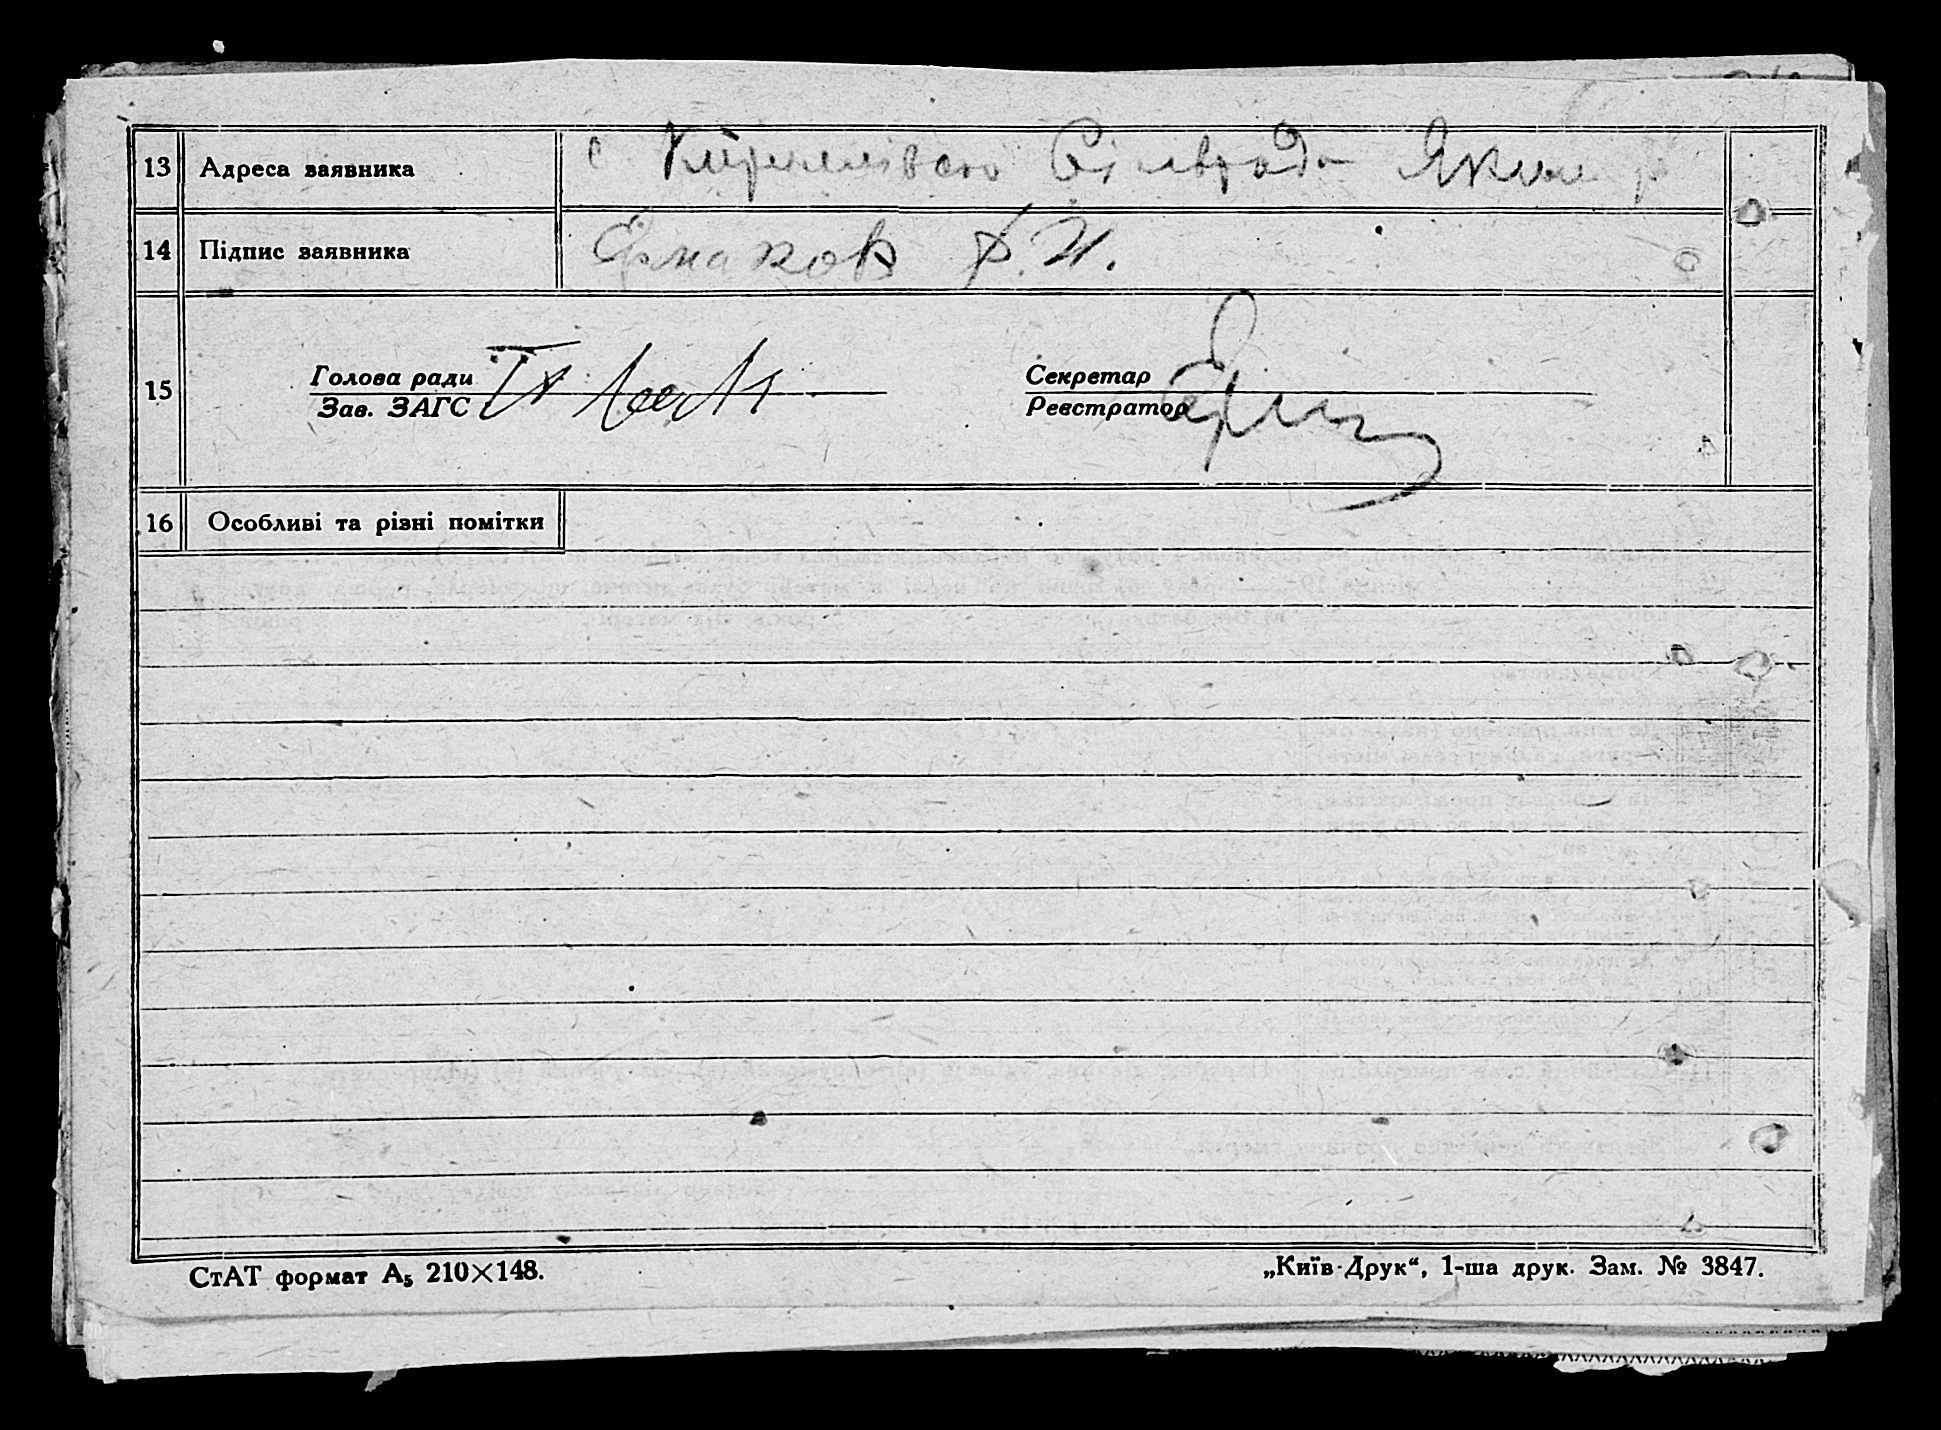 13 Адреса заявника с Кирилівсю Сільрада Яким р
14 Підпис заявника Ермаков Ф. И.
15 Голова ради Секретар
Зав. ЗАГС Реєстратор
16 Особливі та різні помітки
СтАТ формат А₅ 210×148. „Київ-Друк“, 1-ша друк. Зам. № 3847.